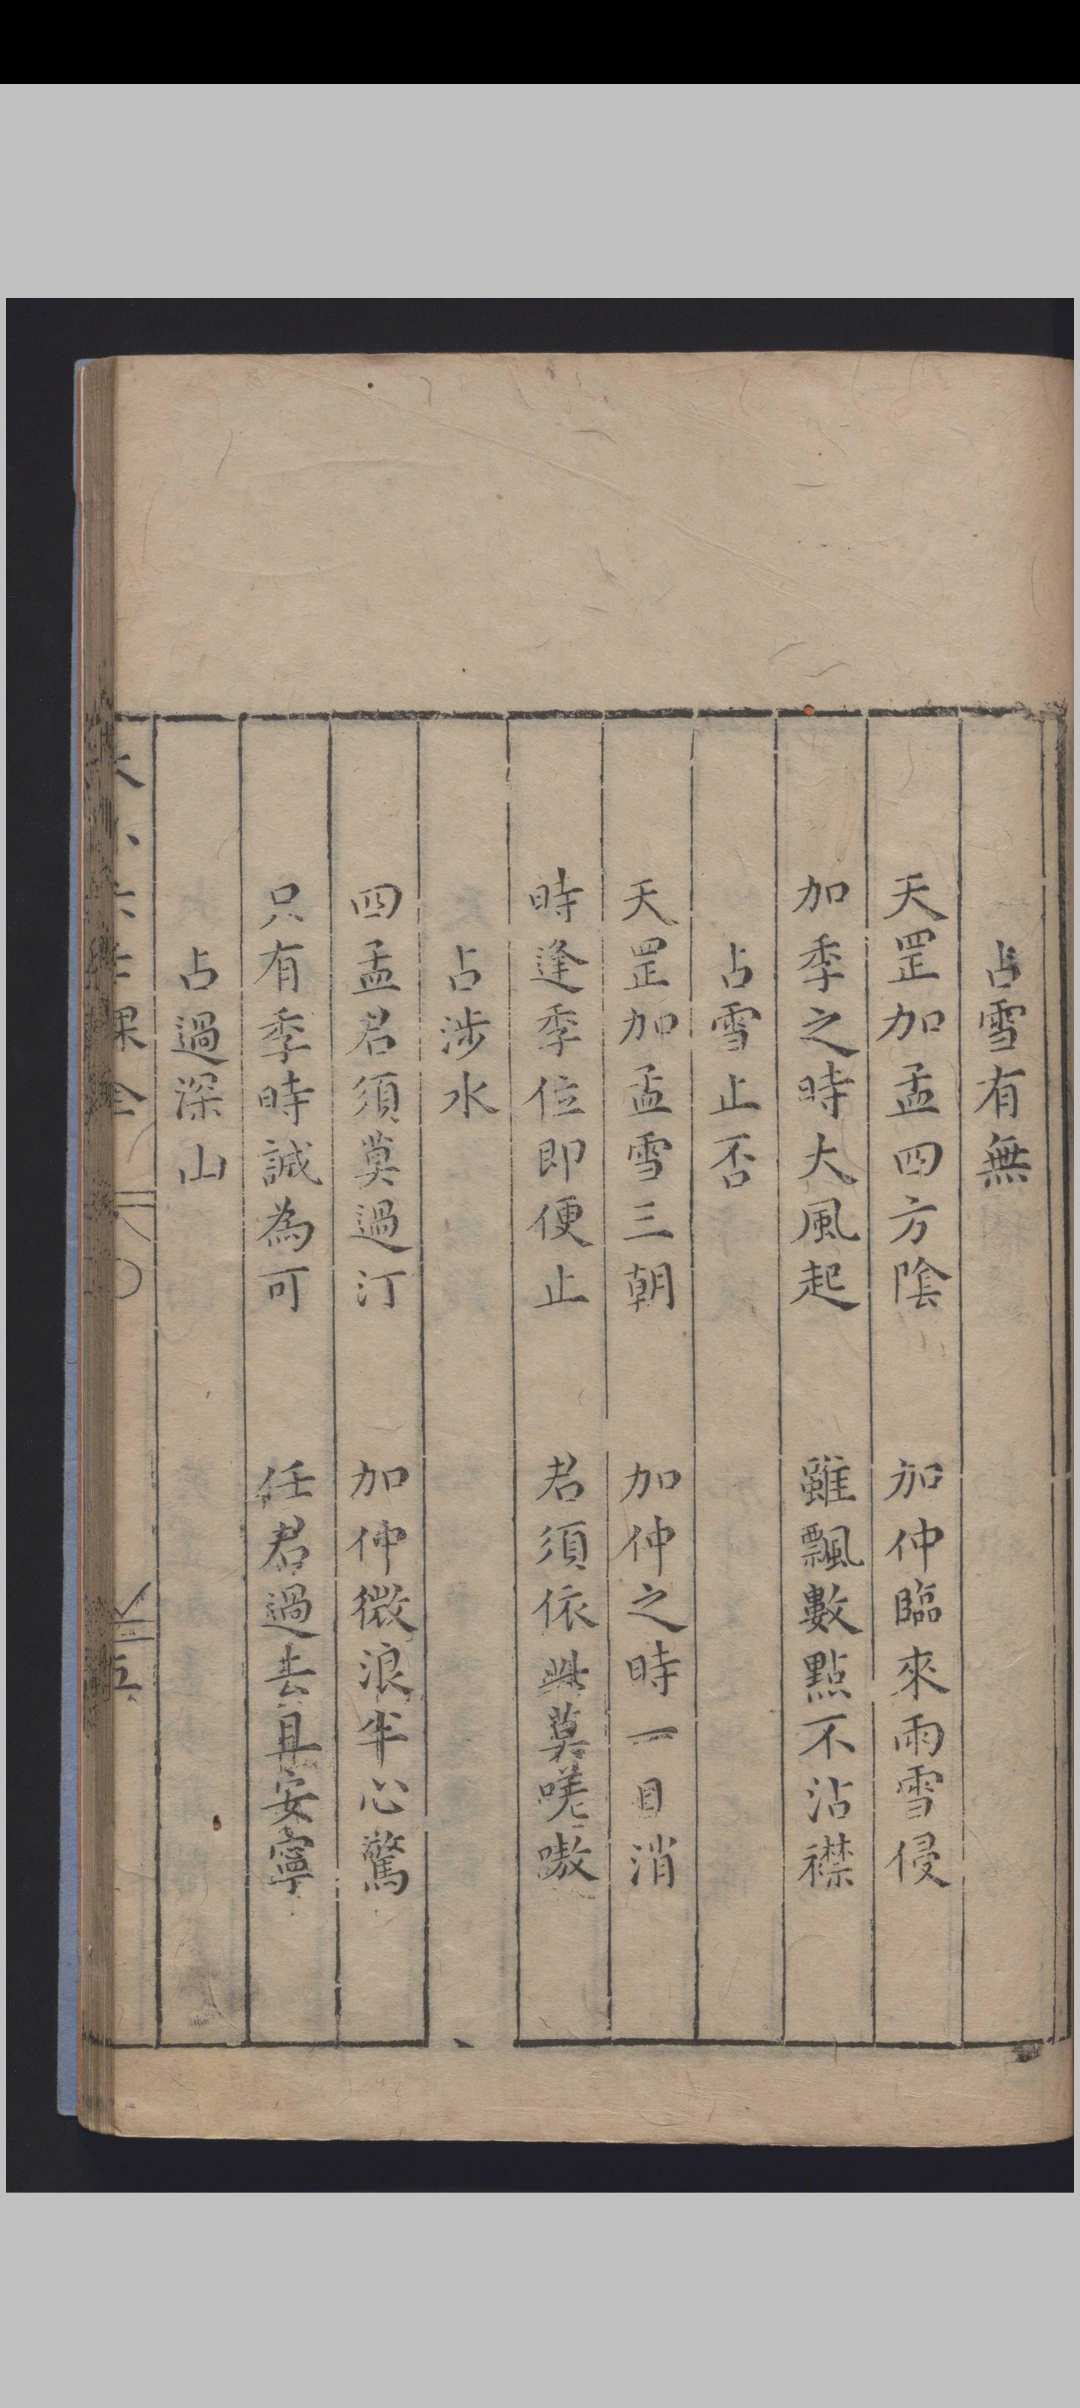 占雪有無
天罡加孟四方陰　加仲臨來雨雪侵
加季之時大風起　雖飄數點不沾襟
占雪止否
天罡加孟雪三朝　加仲之時一日消
時逢季位即便止　君須依此莫嗟嗷
占涉水
四孟君須莫過汀　加仲微浪半心驚
只有季時誠為可　任君過去且安寧
占過深山
課全
五